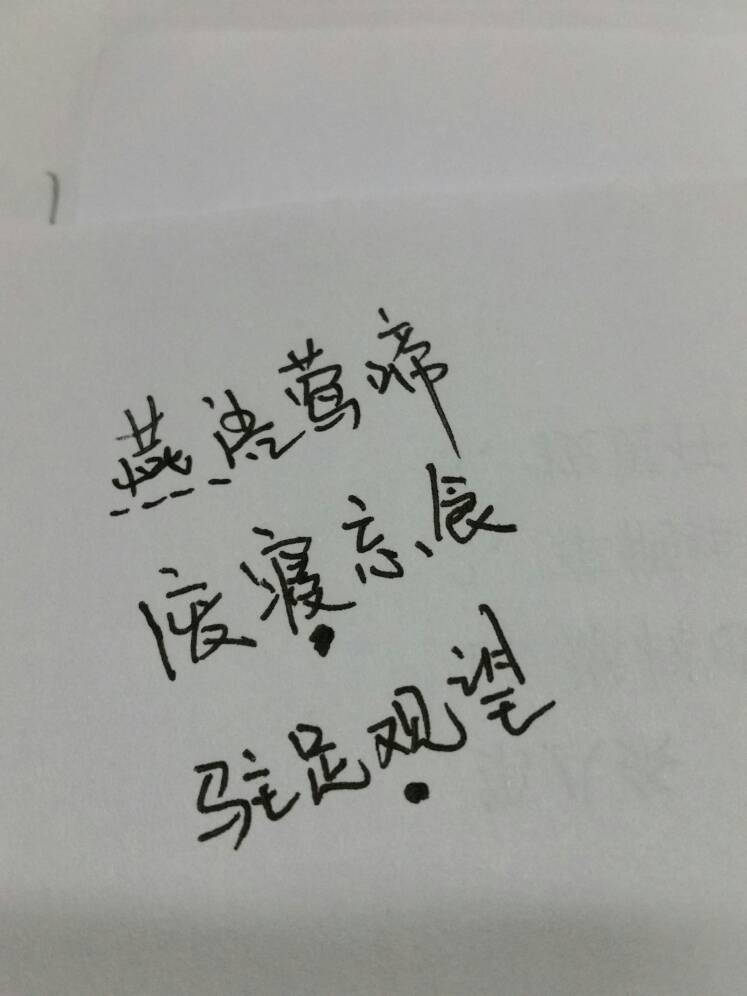 燕语莺啼
废寝忘食
驻足观望